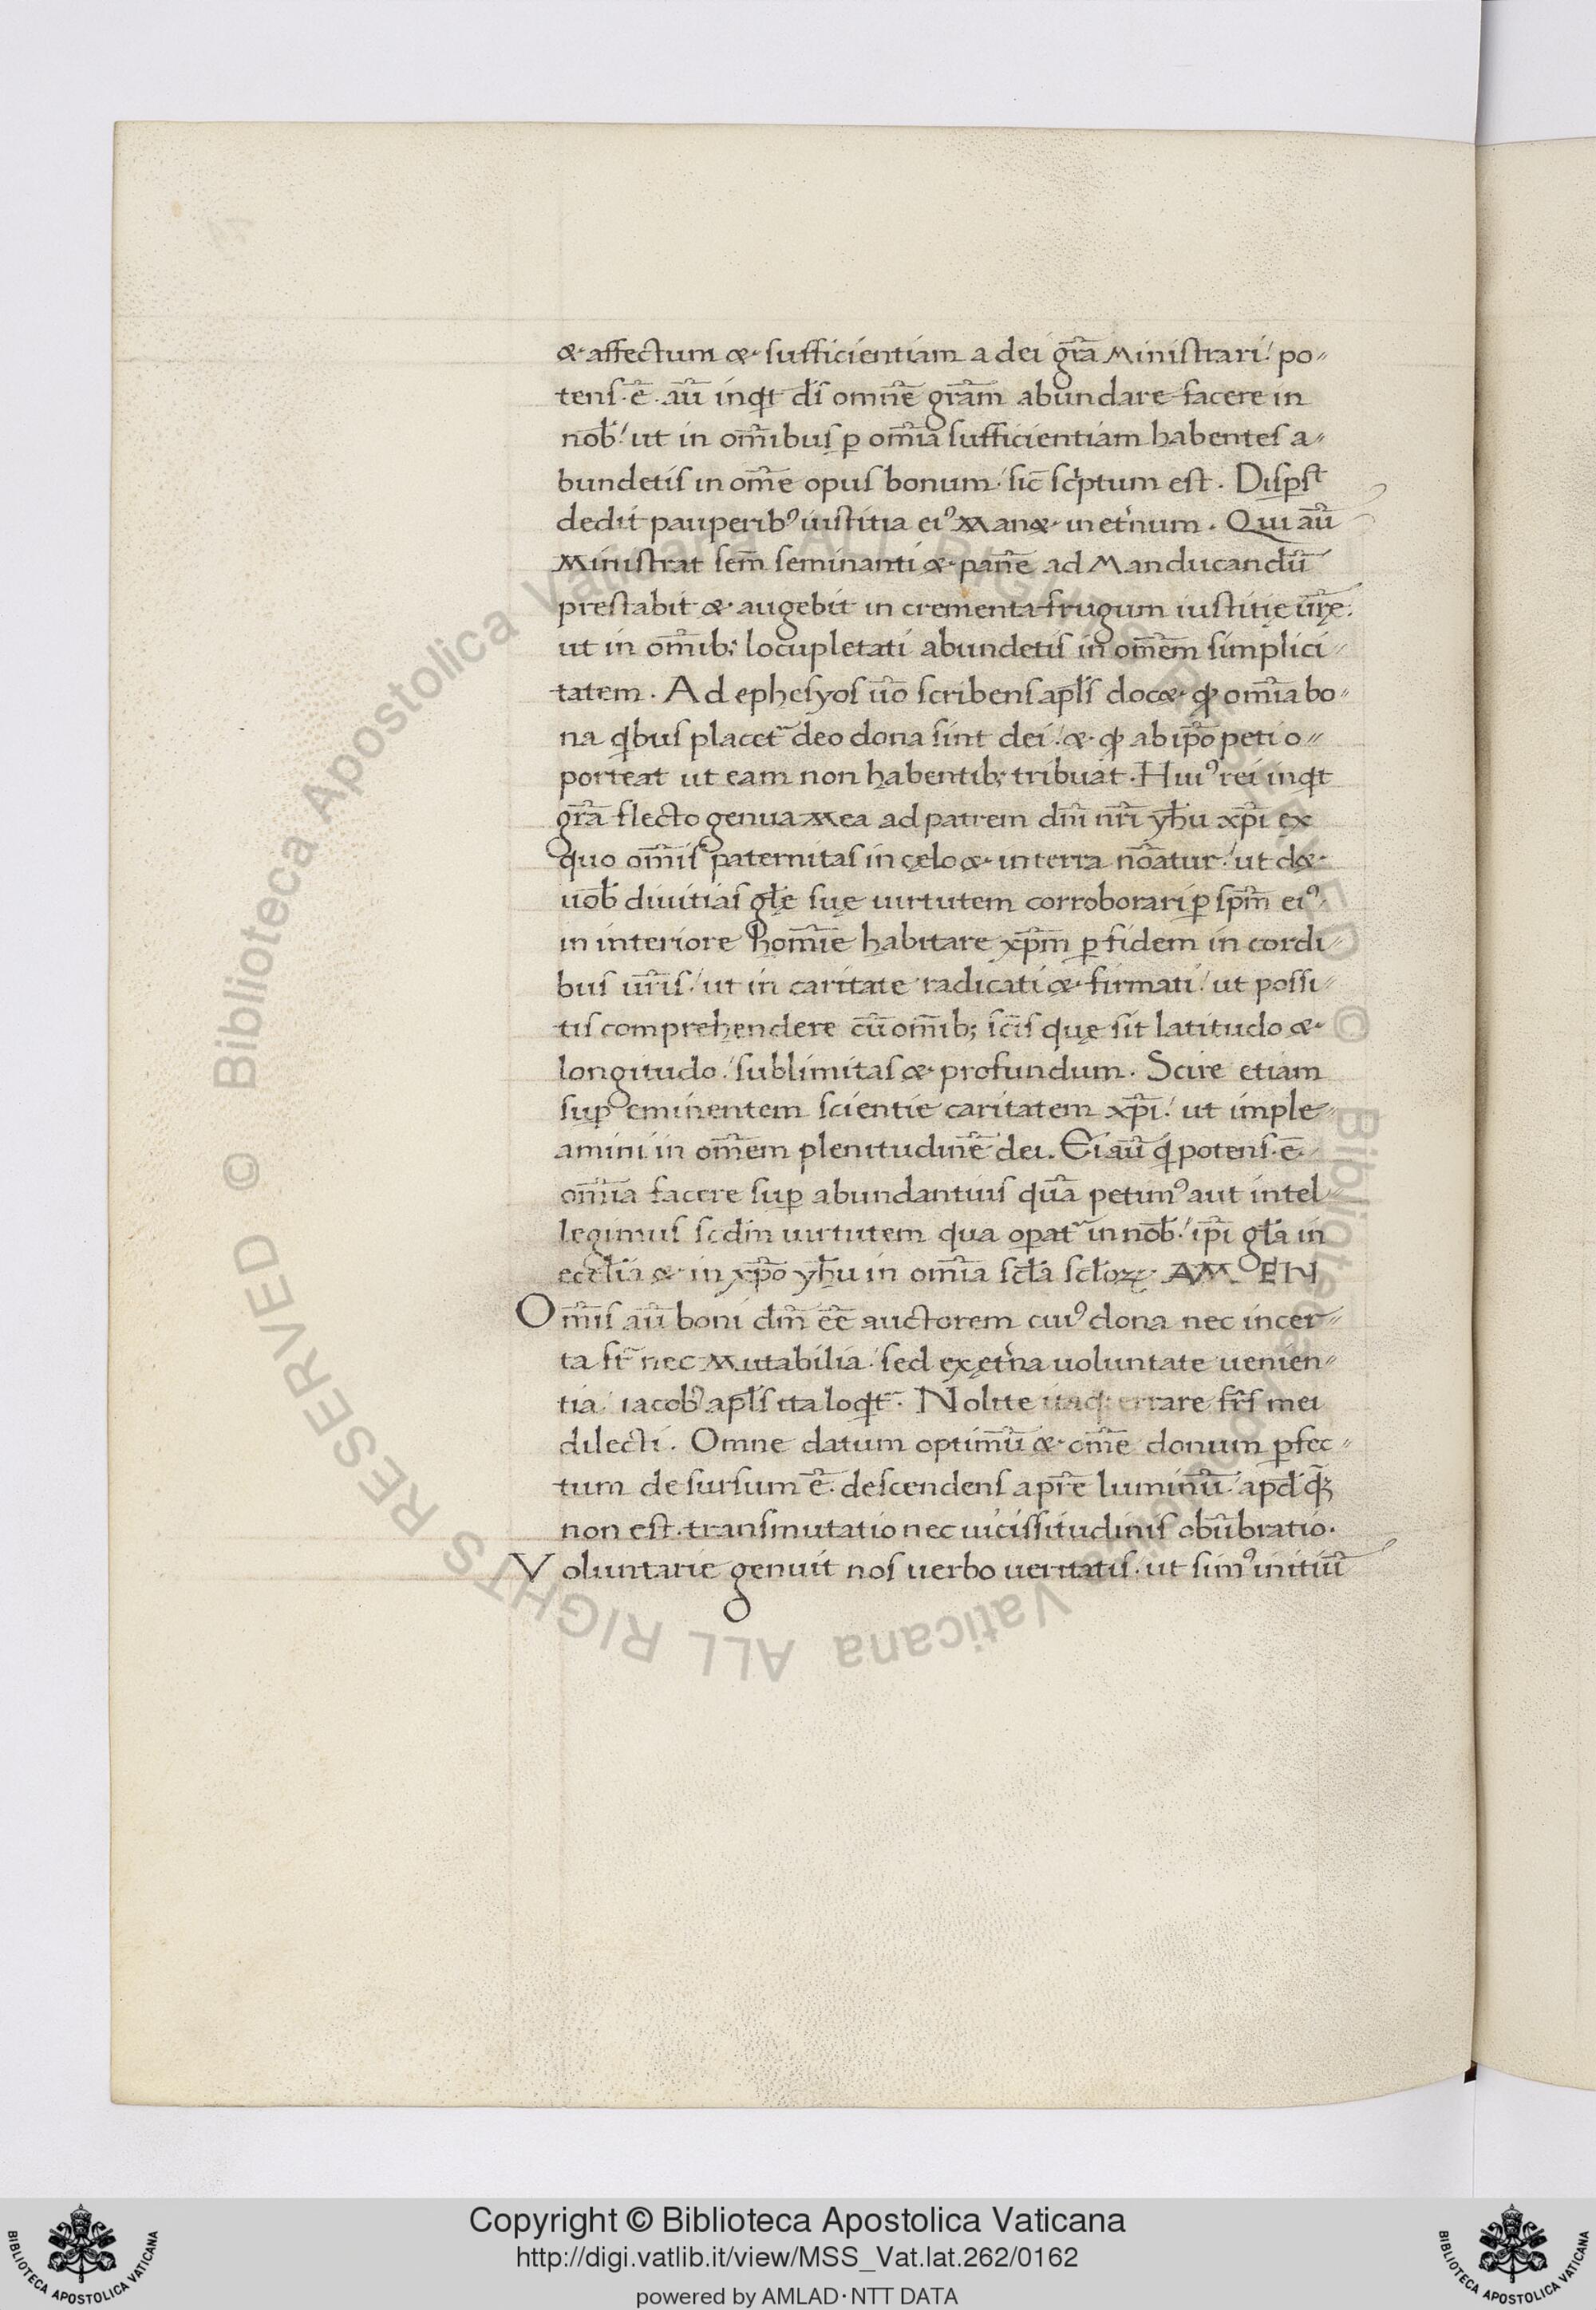 & affectum & sufficientiam a dei gr̄a ministrari! po〃
tens· ē· aū inqt dś omnē grām abundare facere in
nob̄! ut in om̄ibus ꝑ om̄ia sufficientiam habentes a〃
bundetis in om̄e opus bonum· sic̄ scͥptum est. Disꝑsͭ
dedit pauperibꝰ iustitia eiꝰ man& in et̾num. Qui aū
ministrat sem̄ seminanti & panē ad manducandū
prestabit & augebit in crementa frugum iustitię ur̄ę·
ut in om̄ib; locupletati abundetis in om̄em simplici〃
tatem. Ad ephesyos ūo scribens apl̄s doc& ꝙ om̄ia bo〃
na qͥbus placet᷑ deo dona sint dei! & ꝙ ab ip̄o peti o〃
porteat ut eam non habentib; tribuat. Huiꝰ rei inqt
gr̄a flecto genua mea ad patrem dn̄i nr̄i yh̄u xp̄i ex
quo om̄is paternitas in cęlo & in terra nōatur! ut d&
uob̄ diuitias gl̄ę suę uirtutem corroborari ꝑ sp̄m eiꝰ·
in interiore hom̄ie habitare xp̄m ꝑ fidem in cordi〃
bus ur̄is! ut in caritate radicati & firmati! ut possi〃
tis comprehendere cū om̄ib; sc̄is quę sit latitudo &
longitudo! sublimitas & profundum. Scire etiam
suꝑ eminentem scientie caritatem xp̄i! ut imple〃
amini in om̄em plenitudinē dei. Ei aū qͥ potens· ē·
om̄ia facere suꝑ abundantius quā petimꝰ aut intel〃
legimus scdm̄ uirtutem qua oꝑat᷑ in nob̄! ip̄i gl̄a in
eccl̄ia & in xp̄o yh̄u in om̄ia scl̄a scl̄oꝝ· AMEN
Om̄is aū boni dm̄ eē auctorem cuiꝰ dona nec incer〃
ta st᷑ nec mutabilia· sed ex ęt̾na uoluntate uenien〃
tia! iacobꝰ apl̄s ita loqt᷑· Nolite itaq; errare fr̄s mei
dilecti. Omne datum optimū & om̄e donum ꝑfec〃
tum de sursum ē· descendens a pr̄e luminū! apd̄ qē
non est· transmutatio nec uicissitudinis obūbratio·
Voluntarie genuit nos uerbo ueritatis· ut simꝰ initiū
Copyright © Biblioteca Apostolica Vaticana
http://digi.vatlib.it/view/MSS_Vat.lat.262/0162
powered by AMLAD·NTT DATA
BIBLIOTECA APOSTOLICA VATICANA
BIBLIOTECA APOSTOLICA VATICANA
© Biblioteca Apostolica Vaticana ALL RIGHTS RESERVED © Biblioteca Apostolica Vaticana ALL RIGHTS RESERVED